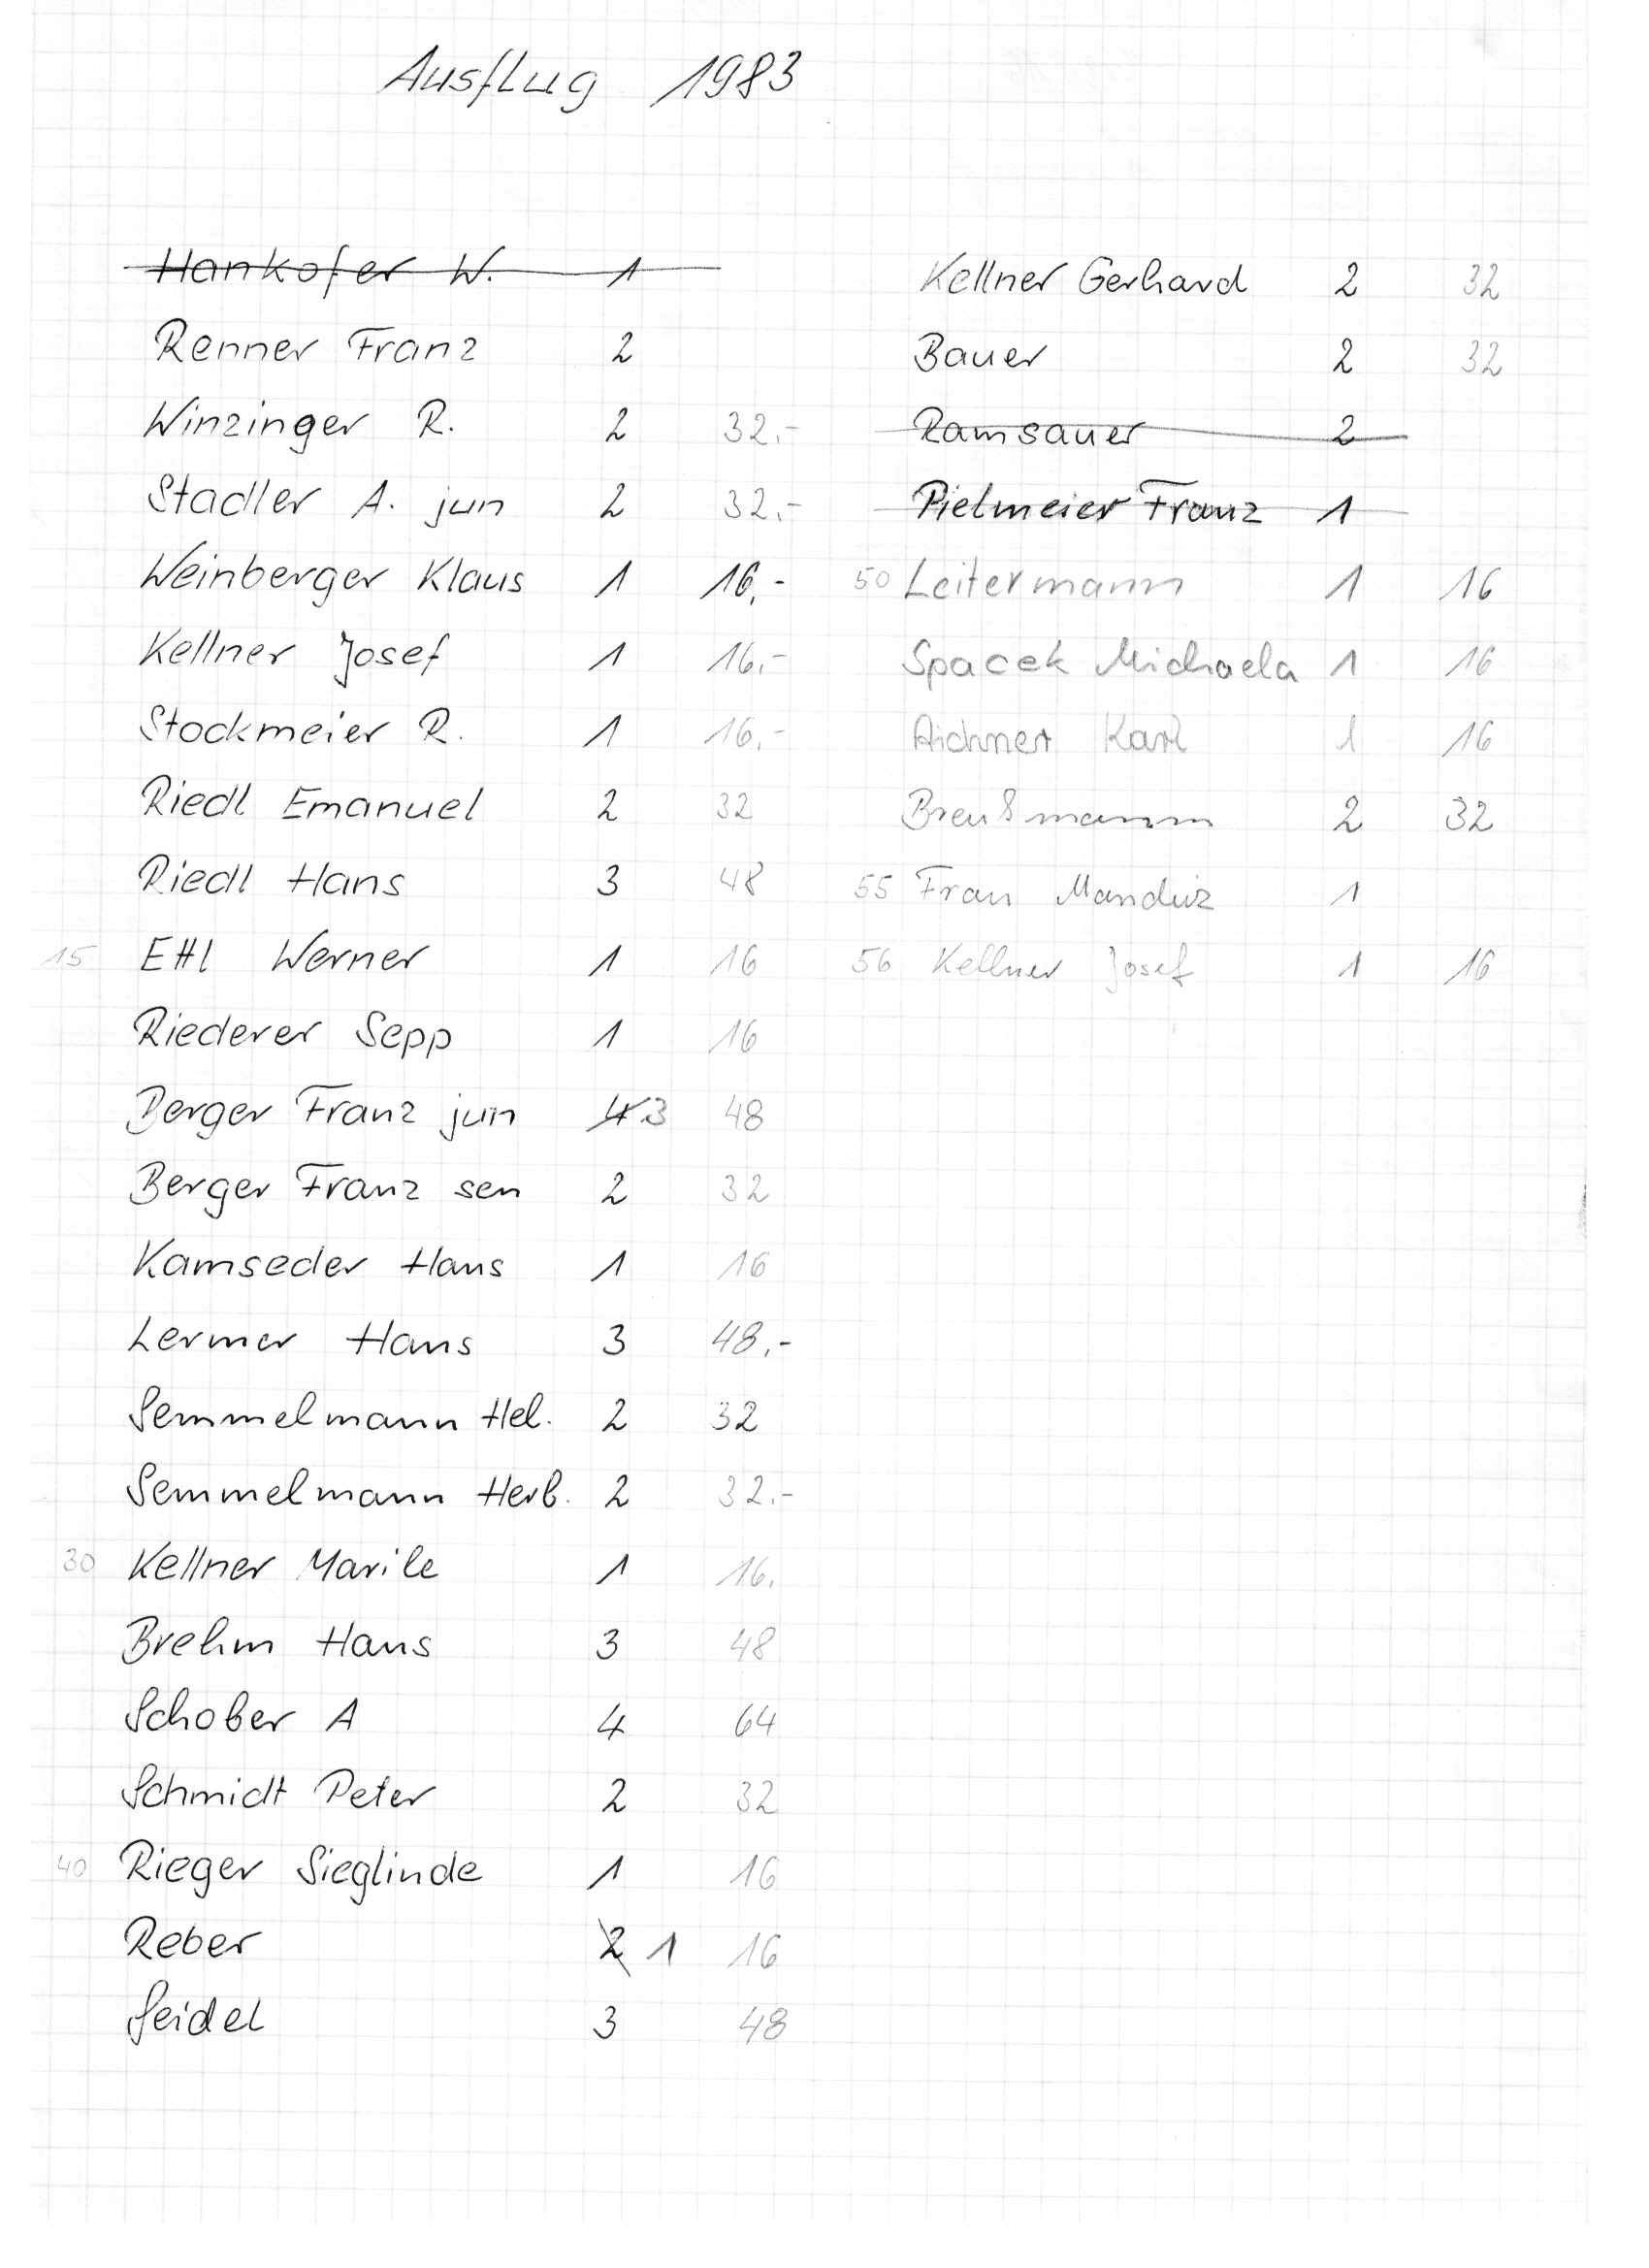 Ausflug 1983
Hankofer W. 1
Renner Franz 2
Winzinger R. 2 32.-
Stadler A. jun 2 32.-
Weinberger Klaus 1 16,-
Kellner Josef 1 16.-
Stockmeier R. 1 16.-
Riedl Emanuel 2 32
Riedl Hans 3 48
15 Ettl Werner 1 16
Riederer Sepp 1 16
Berger Franz jun 4 3 48
Berger Franz sen 2 32
Kamseder Hans 1 16
Lermer Hans 3 48,-
Semmelmann Hel. 2 32
Semmelmann Herb. 2 32.-
30 Kellner Marile 1 16.
Brehm Hans 3 48
Schober A 4 64
Schmidt Peter 2 32
40 Rieger Sieglinde 1 16
Reber 2 1 16
Seidel 3 48
Kellner Gerhard 2 32
Bauer 2 32
Ramsauer 2
Pielmeier Franz 1
50 Leitermann 1 16
Spacek Michaela 1 16
Aichner Karl 1 16
Breußmann 2 32
55 Frau 1
56 Kellner Josef 1 16